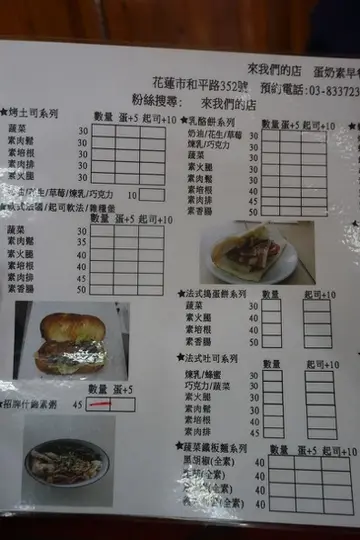 來我們的店 蛋奶素早
花蓮市和平路352號 預約電話:03-833723
粉絲搜尋: 來我們的店
★烤土司系列 數量 蛋+5 起司+10
蔬菜 30
素肉鬆 30
素培根 30
素肉排 30
素火腿 30
/花生/草莓/煉乳/巧克力 10
/起司軟法/雜糧堡
數量 蛋+5 起司+10
蔬菜 30
素肉鬆 35
素火腿 40
素培根 40
素肉排 45
素香腸 50
數量 蛋+5
★招牌什錦素粥 45
★乳酪餅系列 數量 蛋+5 起司+10
奶油/花生/草莓 30
煉乳/巧克力 30
蔬菜 30
素火腿 30
素肉鬆 30
素培根 30
素肉排 40
素香腸 40
★法式搗蛋餅系列 數量 起司+10
蔬菜 30
素火腿 40
素培根 40
素香腸 50
★法式吐司系列
數量 起司+10
煉乳/蜂蜜 30
巧克力/蔬菜 30
素火腿 40
素肉鬆 40
素培根 40
素肉排 40
★蔬菜鐵板麵系列
數量 蛋+5 起司+10
黑胡椒(全素) 40
(全素) 40
(全素) 40
(全素) 40